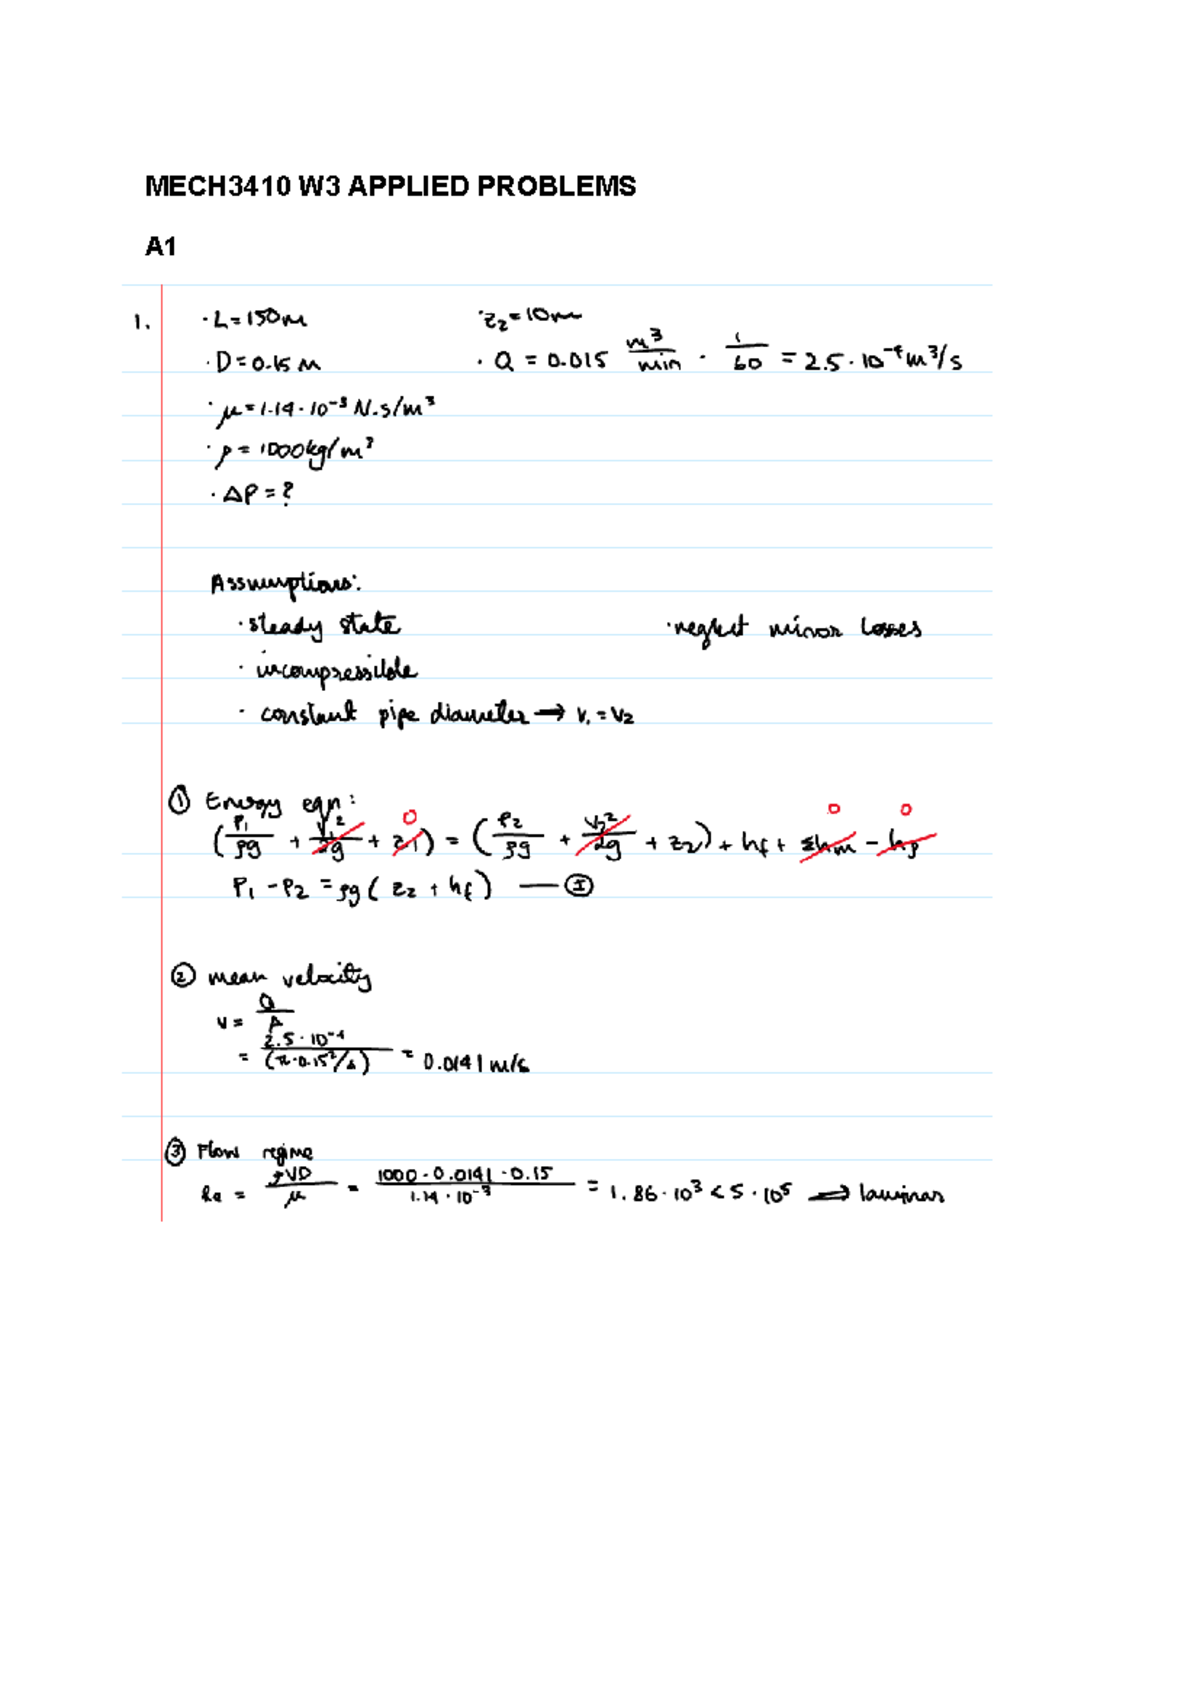 MECH3410 W3 APPLIED PROBLEMS
A1
1. · L = 150m · z₂ = 10m
· D = 0.15 m · Q = 0.015 m³/min · 1/60 = 2.5 · 10⁻⁴ m³/s
· μ = 1.14 · 10⁻³ N.s/m³
· ρ = 1000kg/m³
· ΔP = ?
Assumptions:
· steady state · neglect minor losses
· incompressible
· constant pipe diameter → v₁ = v₂
① Energy eqn:
(P₁/ρg + V₁²/2g + z₁) = (P₂/ρg + V₂²/2g + z₂) + hf + Σhm - hp
0 0 0
P₁ - P₂ = ρg ( z₂ + hf ) — Ⓘ
② mean velocity
v = Q/A
= 2.5 · 10⁻⁴/(π · 0.15²/4) = 0.0141 m/s
③ Flow regime
Re = ρVD/μ = 1000 · 0.0141 · 0.15/1.14 · 10⁻³ = 1.86 · 10³ < 5 · 10⁵ ⟹ laminar